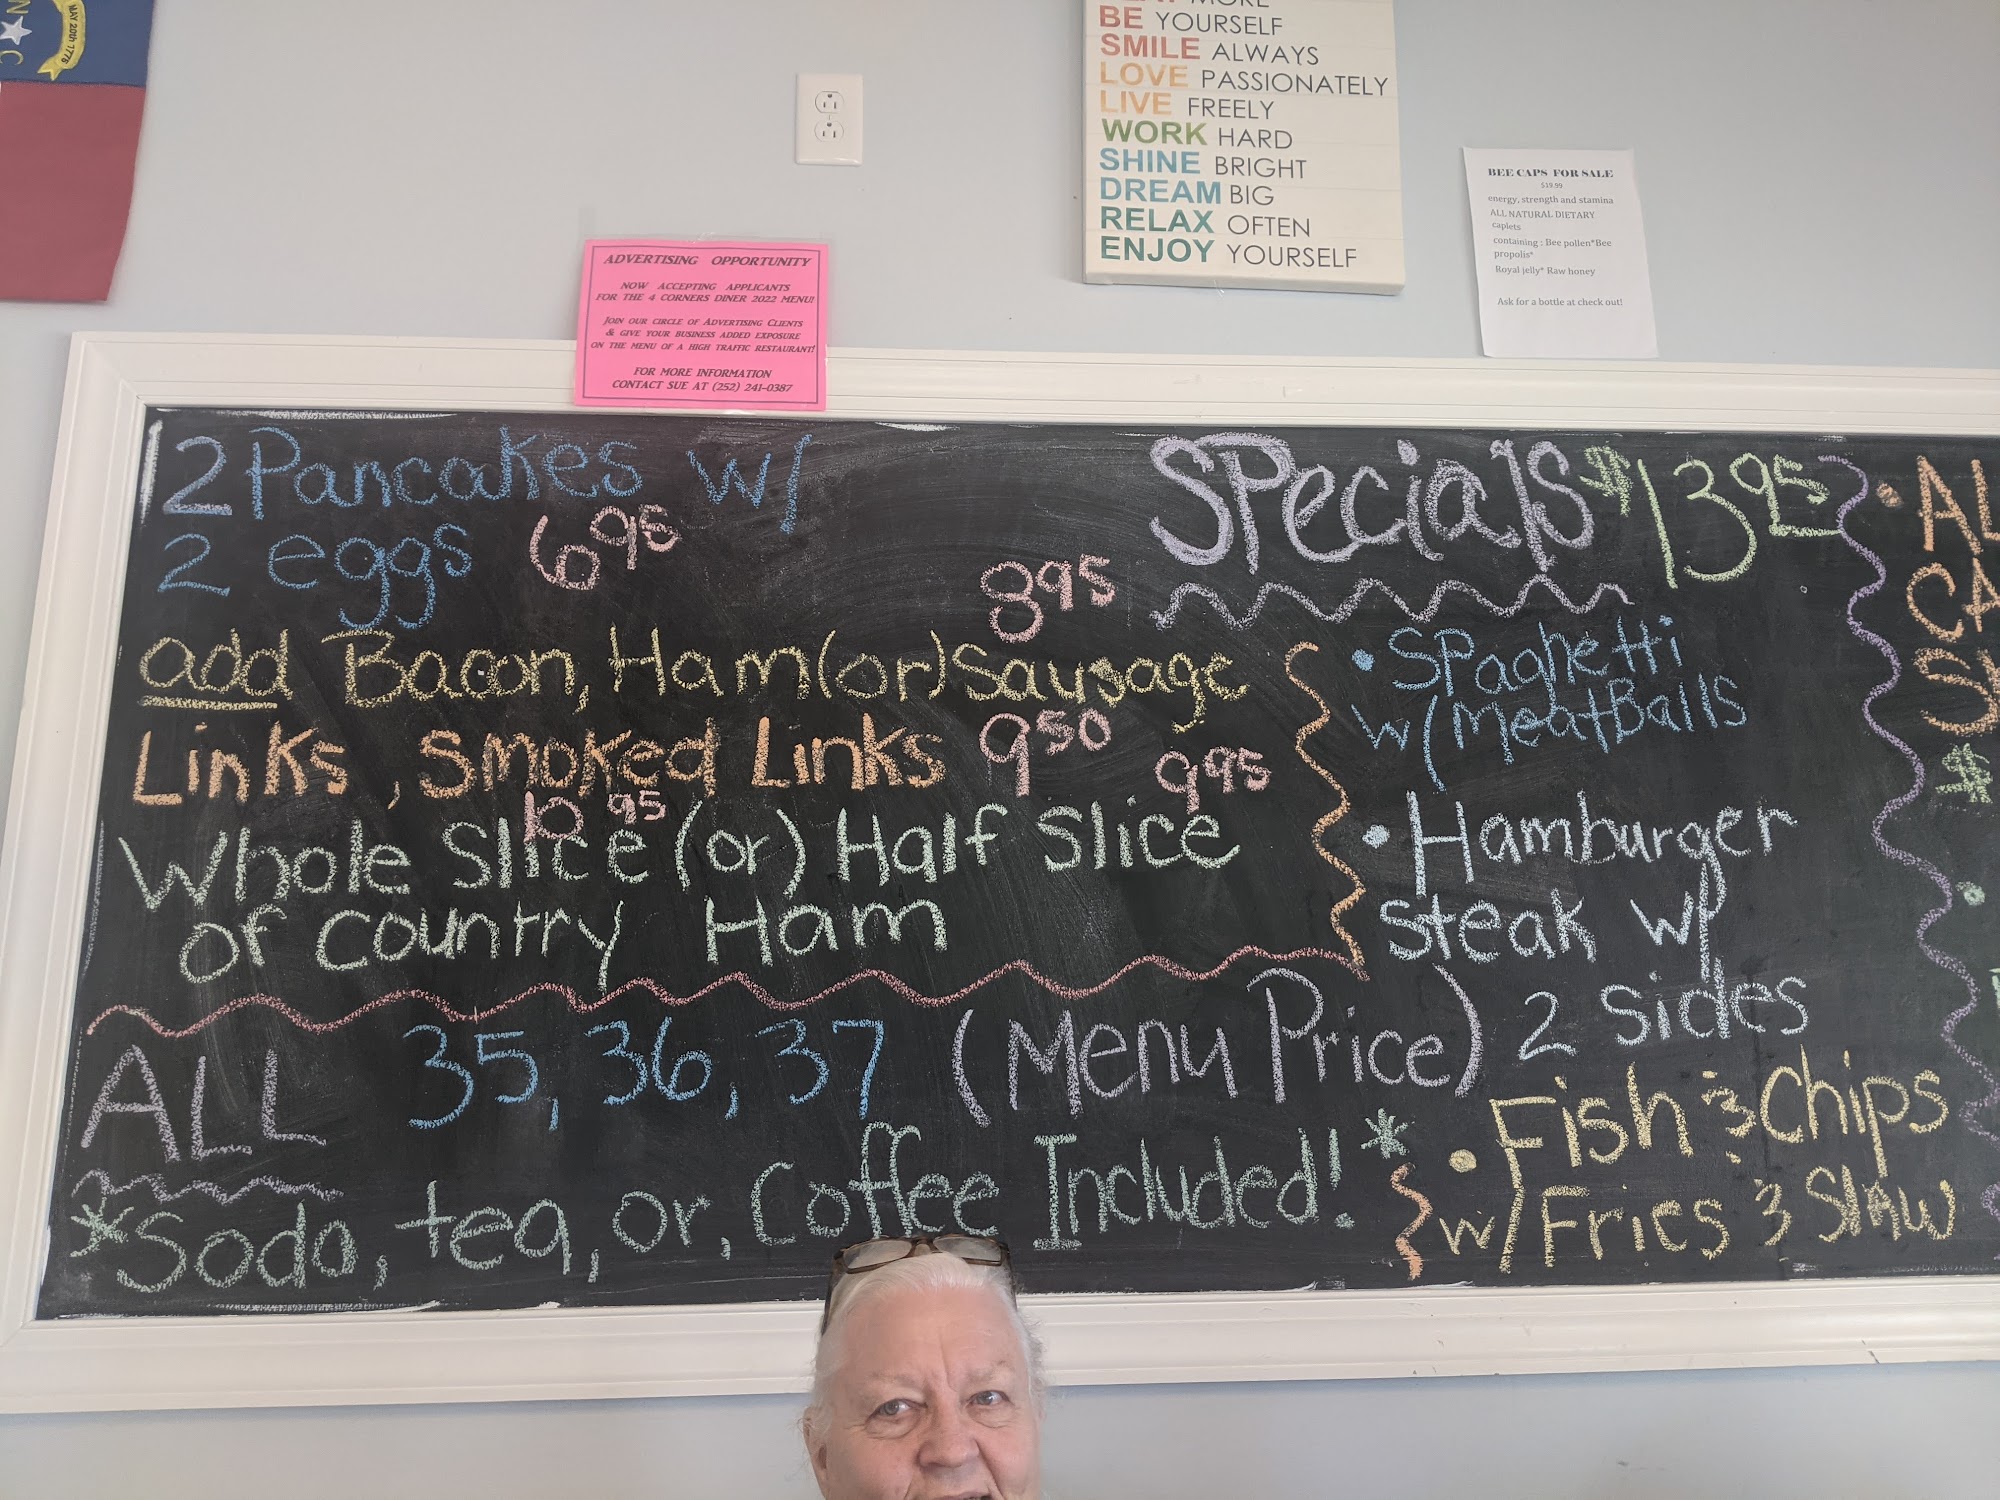 N
C
MAY 20th 1775
MORE
BE YOURSELF
SMILE ALWAYS
LOVE PASSIONATELY
LIVE FREELY
WORK HARD
SHINE BRIGHT
DREAM BIG
RELAX OFTEN
ENJOY YOURSELF
BEE CAPS FOR SALE
$19.99
energy, strength and stamina
ALL NATURAL DIETARY
caplets
containing : Bee pollen*Bee
propolis*
Royal jelly* Raw honey
Ask for a bottle at check out!
ADVERTISING OPPORTUNITY
NOW ACCEPTING APPLICANTS
FOR THE 4 CORNERS DINER 2022 MENU!
JOIN OUR CIRCLE OF ADVERTISING CLIENTS
& GIVE YOUR BUSINESS ADDED EXPOSURE
ON THE MENU OF A HIGH TRAFFIC RESTAURANT!
FOR MORE INFORMATION
CONTACT SUE AT (252) 241-0387
2 Pancakes w/
2 eggs 6.95
8.95
add Bacon, Ham (or) Sausage
Links, Smoked Links 9.50
10.95 9.95
Whole Slice (or) Half Slice
of Country Ham
ALL 35, 36, 37 (Menu Price)
*Soda, tea, or, Coffee Included!*
Specials $13.95
• Spaghetti
w/ MeatBalls
• Hamburger
Steak w/
2 Sides
• Fish & Chips
w/ Fries & Slaw
• AL
CA
$